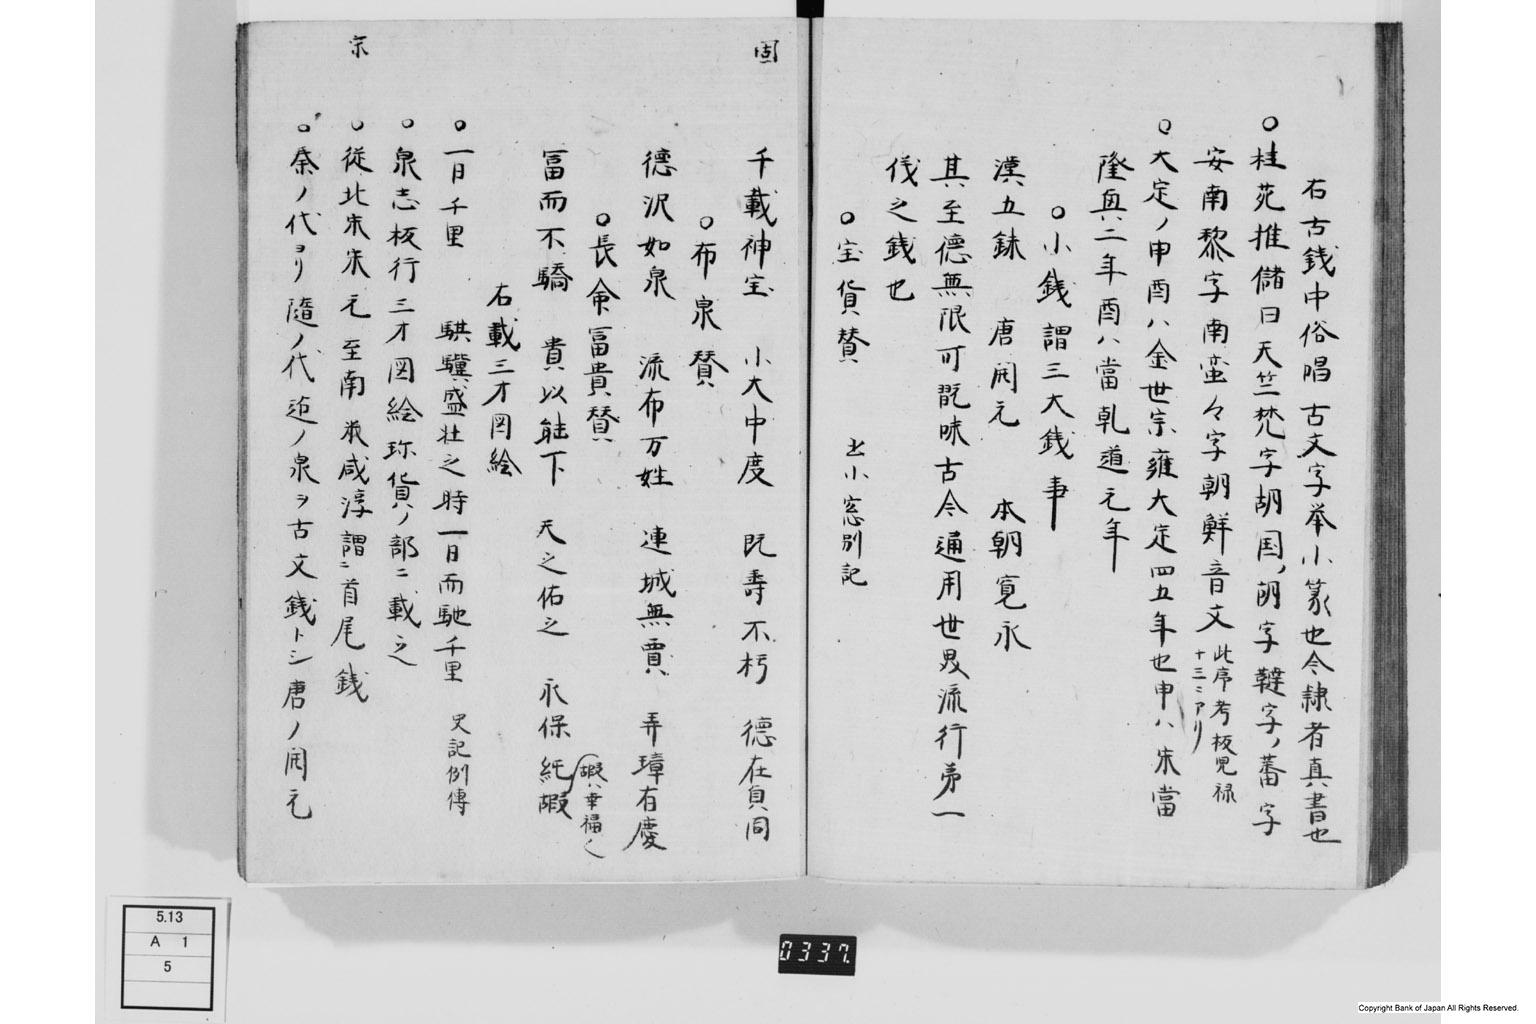 右古銭中俗唱古文字挙小篆也今隷者真書也
○桂苑推儲曰天竺梵字胡国ノ胡字韃字ノ蕃字
安南黎字南蛮々字朝鮮音文此序考板児禄
十三ニアリ
○大定ノ申酉ハ金世宗雍大定四五年也申ハ宋當
隆興二年酉ハ當乾道元年
○小銭謂三大銭事
漢五銖 唐開元 本朝寛永
其至徳無限可既昧古今通用世界流行第一
伐之銭也
○宝貨賛 出小窓別記
固
千載神宝 小大中度 既壽不朽 德在貞同
○布泉賛
德沢如泉 流布万姓 連城無賈 弄璋有慶
○長命冨貴賛
冨而不驕 貴以能下 天之佑之 永保純嘏
嘏ハ幸福
右載三才図絵
○一日千里 騏驥盛壮之時一日而馳千里 史記例傳
○泉志板行三才図絵珎貨ノ部ニ載之
宗
○従北宋宋元至南咸淳謂ニ首尾銭
○秦ノ代ヨリ隨ノ代迠ノ泉ヲ古文銭トシ唐ノ開元
5.13
A 1
5
0337.
Copyright Bank of Japan All Rights Reserved.